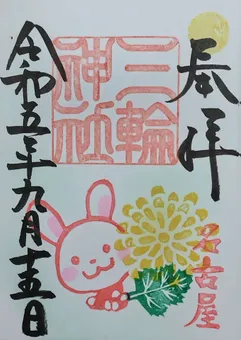 奉拝
三輪
神社
名古屋
令和五年九月十五日